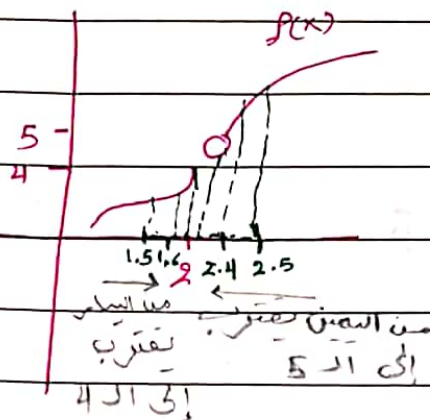 f(x)
5
4
1.5 1.6 2 2.4 2.5
من اليسار
يقترب
إلى الـ 4
من اليمين يقترب
إلى الـ 5